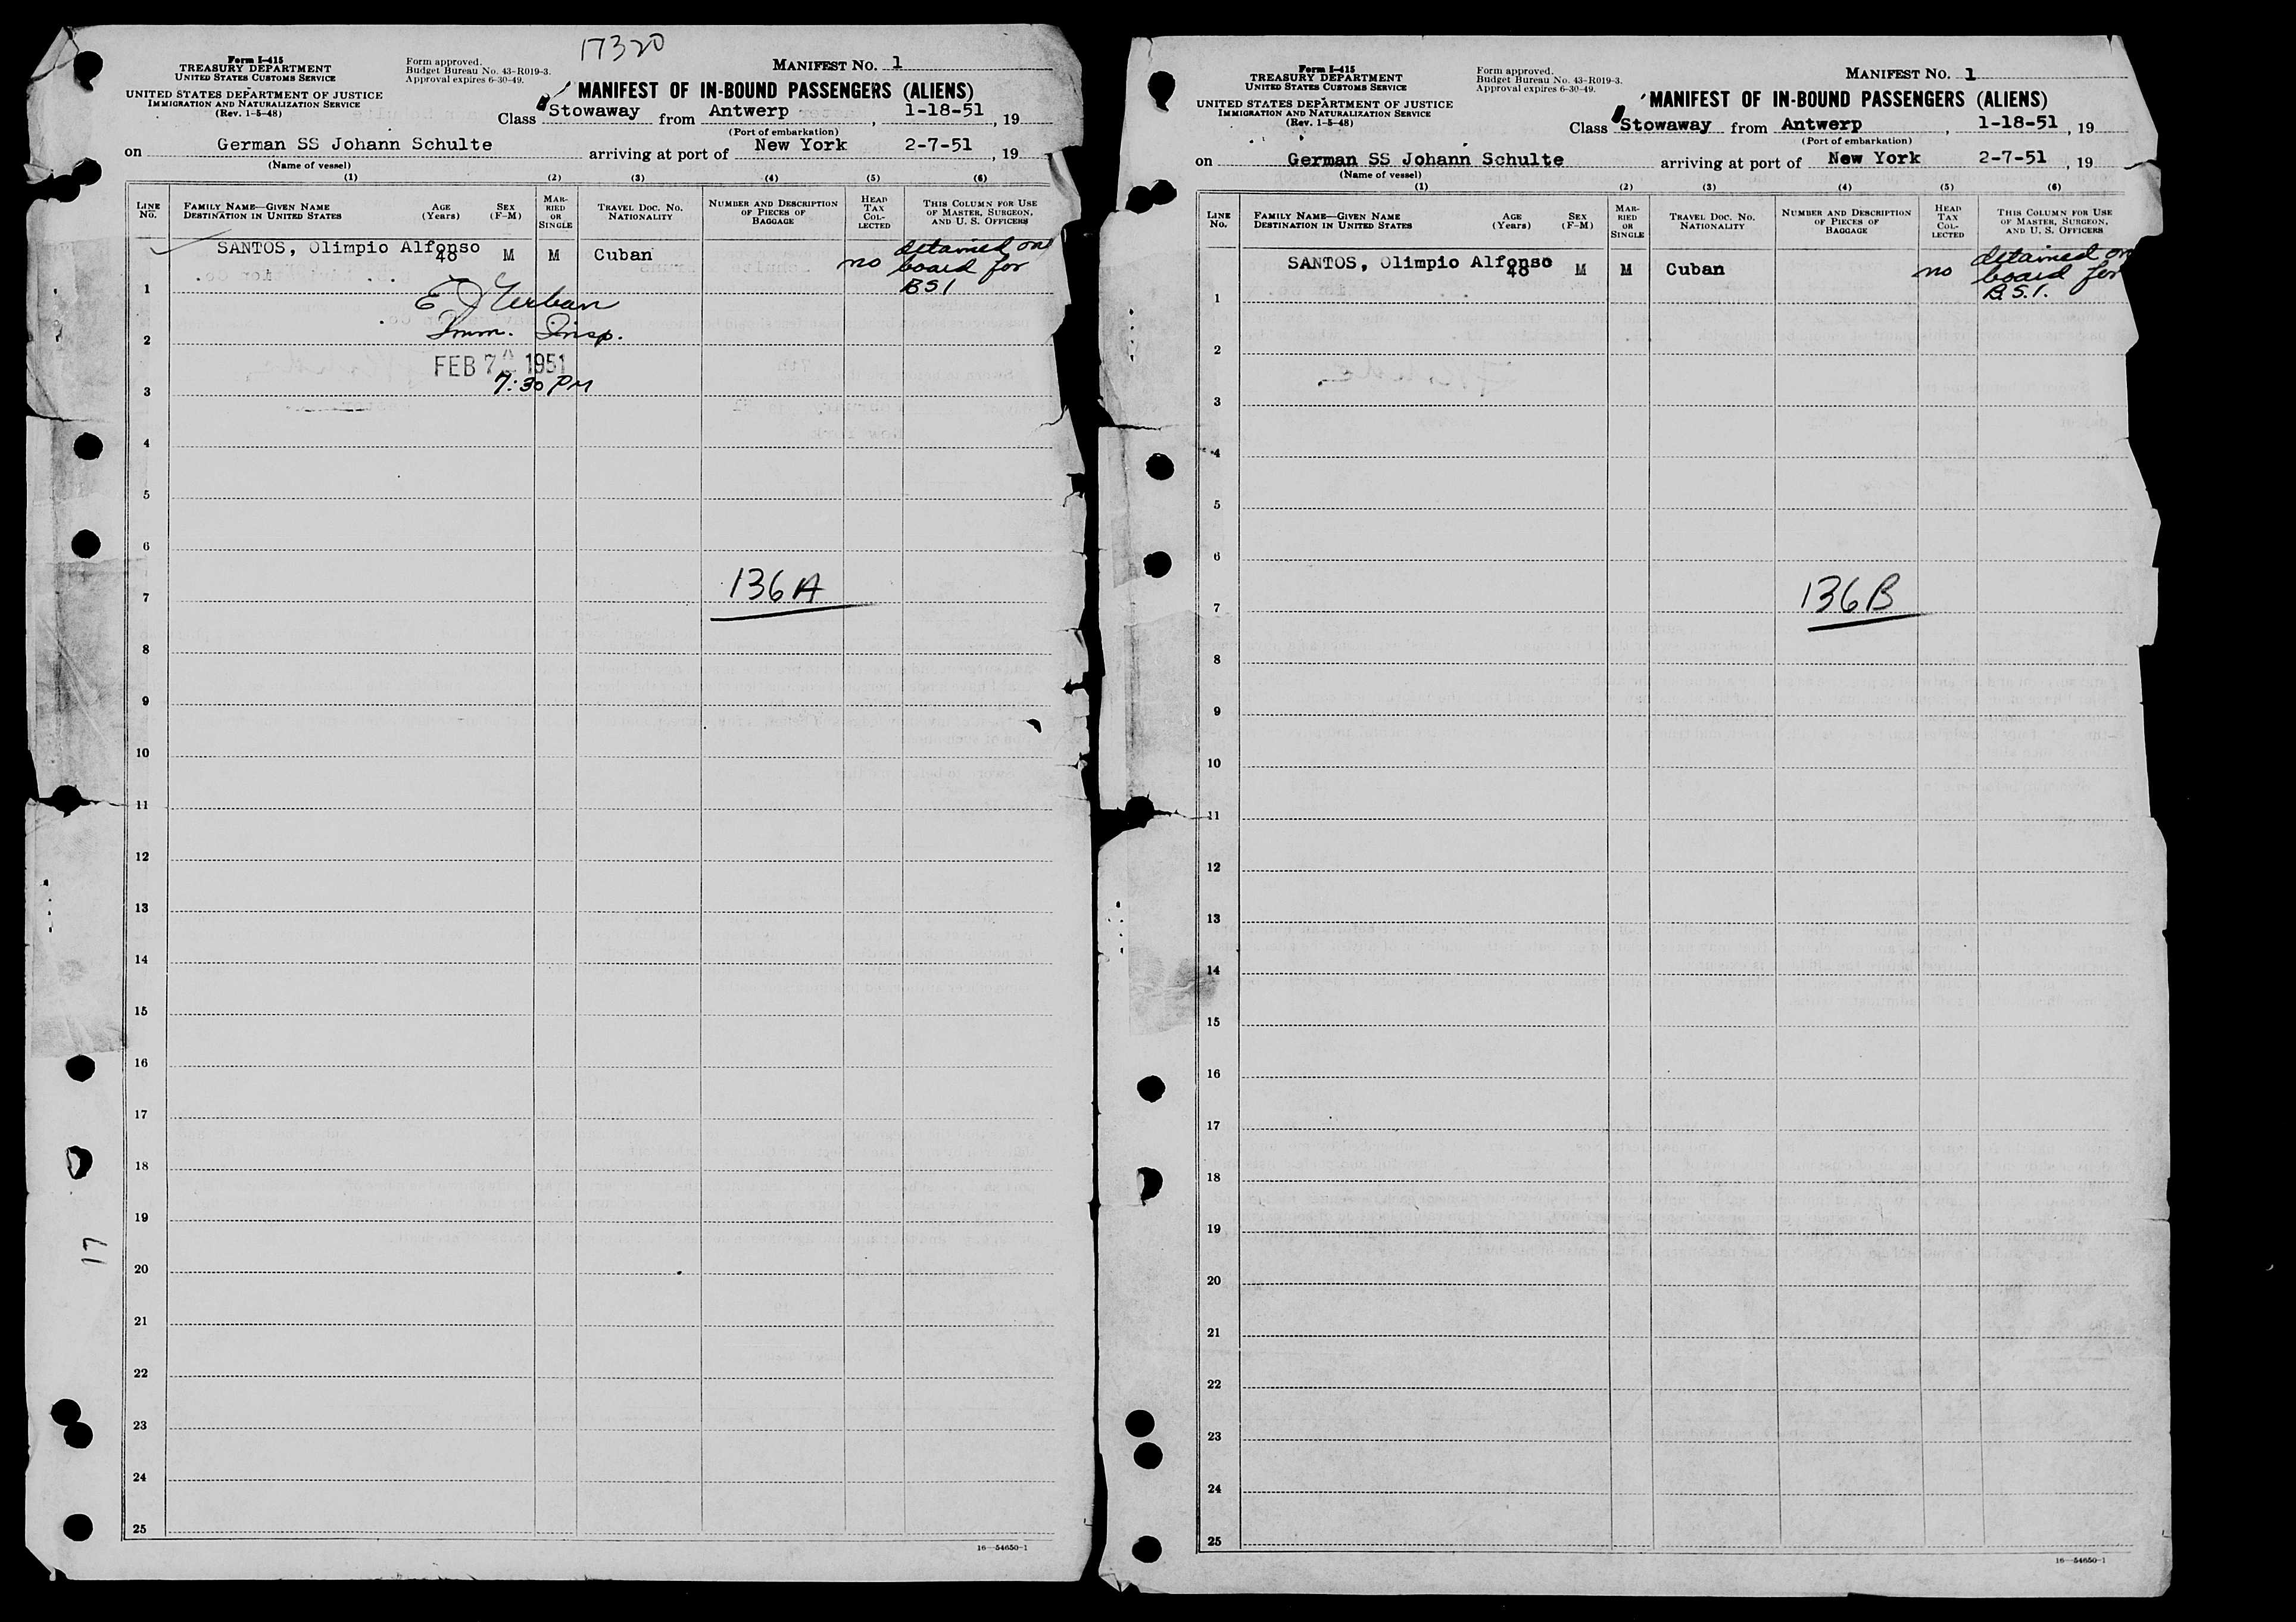 17320
Form I-415
TREASURY DEPARTMENT
UNITED STATES CUSTOMS SERVICE
UNITED STATES DEPARTMENT OF JUSTICE
IMMIGRATION AND NATURALIZATION SERVICE
(Rev. 1-5-48)
Form approved.
Budget Bureau No. 43-R019-3.
Approval expires 6-30-49.
MANIFEST NO. 1
MANIFEST OF IN-BOUND PASSENGERS (ALIENS)
Class Stowaway from Antwerp, 1-18-51, 19
(Port of embarkation)
on German SS Johann Schulte arriving at port of New York 2-7-51, 19
(Name of vessel)
(1) (2) (3) (4) (5) (6)
LINE NO. FAMILY NAME—GIVEN NAME DESTINATION IN UNITED STATES AGE (Years) SEX (F-M) MARRIED OR SINGLE TRAVEL DOC. NO. NATIONALITY NUMBER AND DESCRIPTION OF PIECES OF BAGGAGE HEAD TAX COLLECTED THIS COLUMN FOR USE OF MASTER, SURGEON, AND U. S. OFFICERS
SANTOS, Olimpio Alfonso 48 M M Cuban no detained on
board for
BSI
1
E J Urban
Imm. Insp.
2
FEB 7 1951
7:30 PM
3
4
5
6
136A
7
8
9
10
11
12
13
14
15
16
17
18
19
17
20
21
22
23
24
25
16—54650-1
Form I-415
TREASURY DEPARTMENT
UNITED STATES CUSTOMS SERVICE
UNITED STATES DEPARTMENT OF JUSTICE
IMMIGRATION AND NATURALIZATION SERVICE
(Rev. 1-5-48)
Form approved.
Budget Bureau No. 43-R019-3.
Approval expires 6-30-49.
MANIFEST NO. 1
MANIFEST OF IN-BOUND PASSENGERS (ALIENS)
Class Stowaway from Antwerp, 1-18-51, 19
(Port of embarkation)
on German SS Johann Schulte arriving at port of New York 2-7-51, 19
(Name of vessel)
(1) (2) (3) (4) (5) (6)
LINE NO. FAMILY NAME—GIVEN NAME DESTINATION IN UNITED STATES AGE (Years) SEX (F-M) MARRIED OR SINGLE TRAVEL DOC. NO. NATIONALITY NUMBER AND DESCRIPTION OF PIECES OF BAGGAGE HEAD TAX COLLECTED THIS COLUMN FOR USE OF MASTER, SURGEON, AND U. S. OFFICERS
SANTOS, Olimpio Alfonso 48 M M Cuban no detained on
board for
B.S.I.
1
2
3
4
5
6
136B
7
8
9
10
11
12
13
14
15
16
17
18
19
20
21
22
23
24
25
16—54650-1